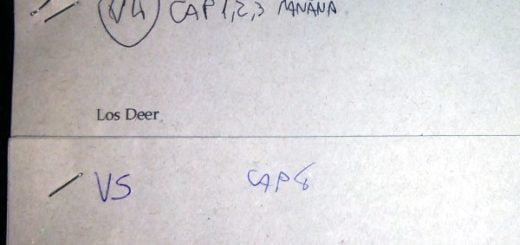 V4 CAP 1,2,3 MAÑANA
Los Deer
VS CAP 8